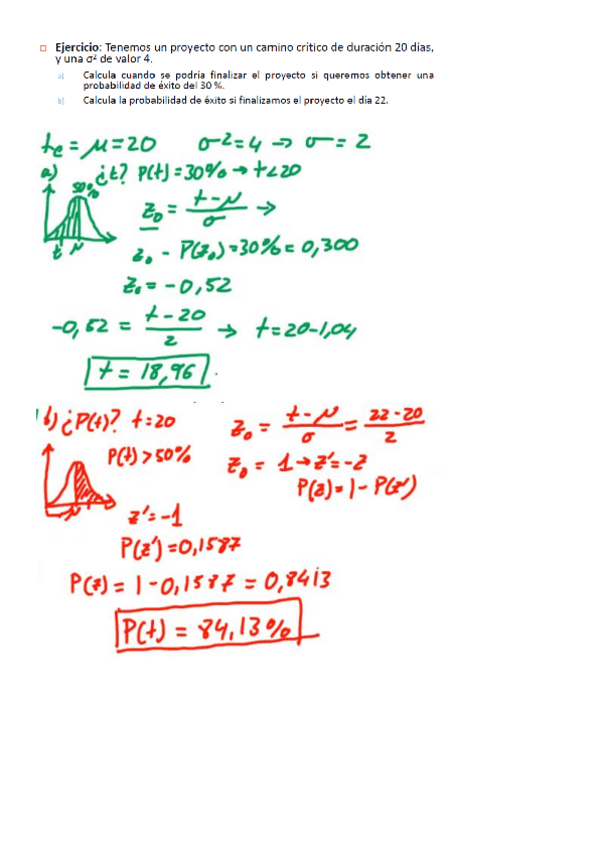 Ejercicio: Tenemos un proyecto con un camino crítico de duración 20 días,
y una σ² de valor 4.
a) Calcula cuando se podría finalizar el proyecto si queremos obtener una
probabilidad de éxito del 30%.
b) Calcula la probabilidad de éxito si finalizamos el proyecto el día 22.
te = μ = 20 σ² = 4 → σ = 2
a) ¿t? P(t) = 30% → t < 20
50%
z₀ = (t - μ) / σ →
t μ
z₀ - P(z₀) = 30% = 0,300
z₀ = -0,52
-0,52 = (t - 20) / 2 → t = 20 - 1,04
t = 18,96
b) ¿P(t)? t = 20
z₀ = (t - μ) / σ = (22 - 20) / 2
P(t) > 50%
z₀ = 1 → z' = -z
P(z) = 1 - P(z')
μ
z' = -1
P(z') = 0,1587
P(z) = 1 - 0,1587 = 0,8413
P(t) = 84,13%